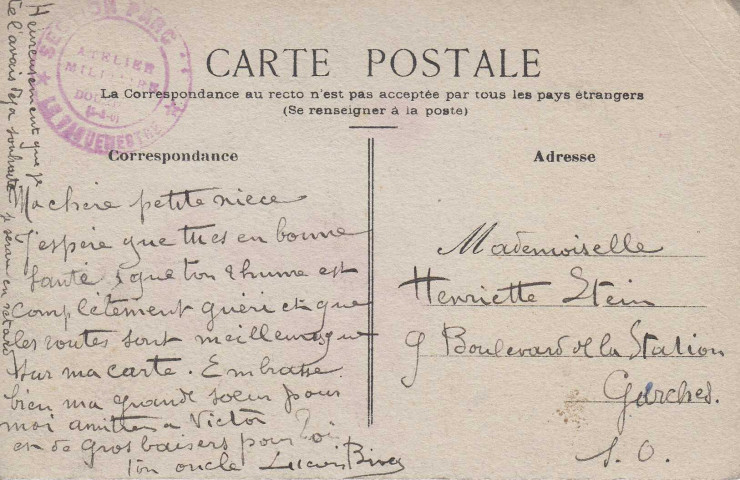 CARTE POSTALE
La Correspondance au recto n'est pas acceptée par tous les pays étrangers
(Se renseigner à la poste)
SECTION PARC
ATELIER
MILITAIRE
LE VAGUEMESTRE
Correspondance
Ma chère petite nièce
J'espère que tu es en bonne
santé, que ton rhume est
complètement guéri et que
les routes sont meilleures que
sur ma carte. Embrasse
bien ma grande soeur pour
moi amitiés a Victor
et de gros baisers pour toi
Ton oncle Lucien
Heureusement que je
te l'avais déja souhaité je serais en retard
Adresse
Mademoiselle
Henriette Stein
9 Boulevard de la Station
Garches.
S. O.